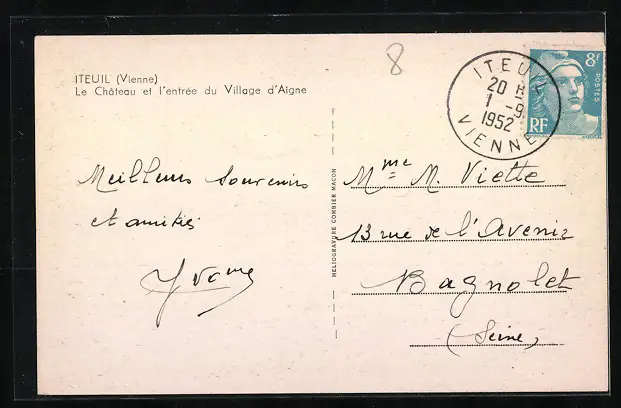 ITEUIL (Vienne)
Le Château et l'entrée du Village d'Aigne
8
ITEUIL
20 H
1 -9
1952
VIENNE
8F
POSTES
RF
Meilleurs souvenirs
et amitiés
Yvonne
HELIOGRAVURE COMBIER MACON
Mme M. Viette
13 rue de l'Avenir
Bagnolet
(Seine)